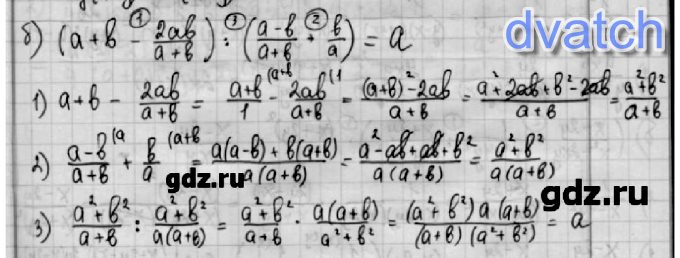 б) (a+b - 2ab/(a+b)) : ((a-b)/(a+b) + b/a) = a
① ③ ②
dvatch
1) a+b - 2ab/(a+b) = (a+b)/1 (a+b - 2ab/(a+b) (1 = ((a+b)² - 2ab)/(a+b) = (a² + 2ab + b² - 2ab)/(a+b) = (a²+b²)/(a+b)
2) (a-b)/(a+b) (a + b/a (a+b = (a(a-b) + b(a+b))/(a(a+b)) = (a² - ab + ab + b²)/(a(a+b)) = (a²+b²)/(a(a+b))
gdz.ru
gdz.ru
3) (a²+b²)/(a+b) : (a²+b²)/(a(a+b)) = (a²+b²)/(a+b) · a(a+b)/(a²+b²) = ((a²+b²) a (a+b))/((a+b)(a²+b²)) = a
gdz.ru
gdz.ru